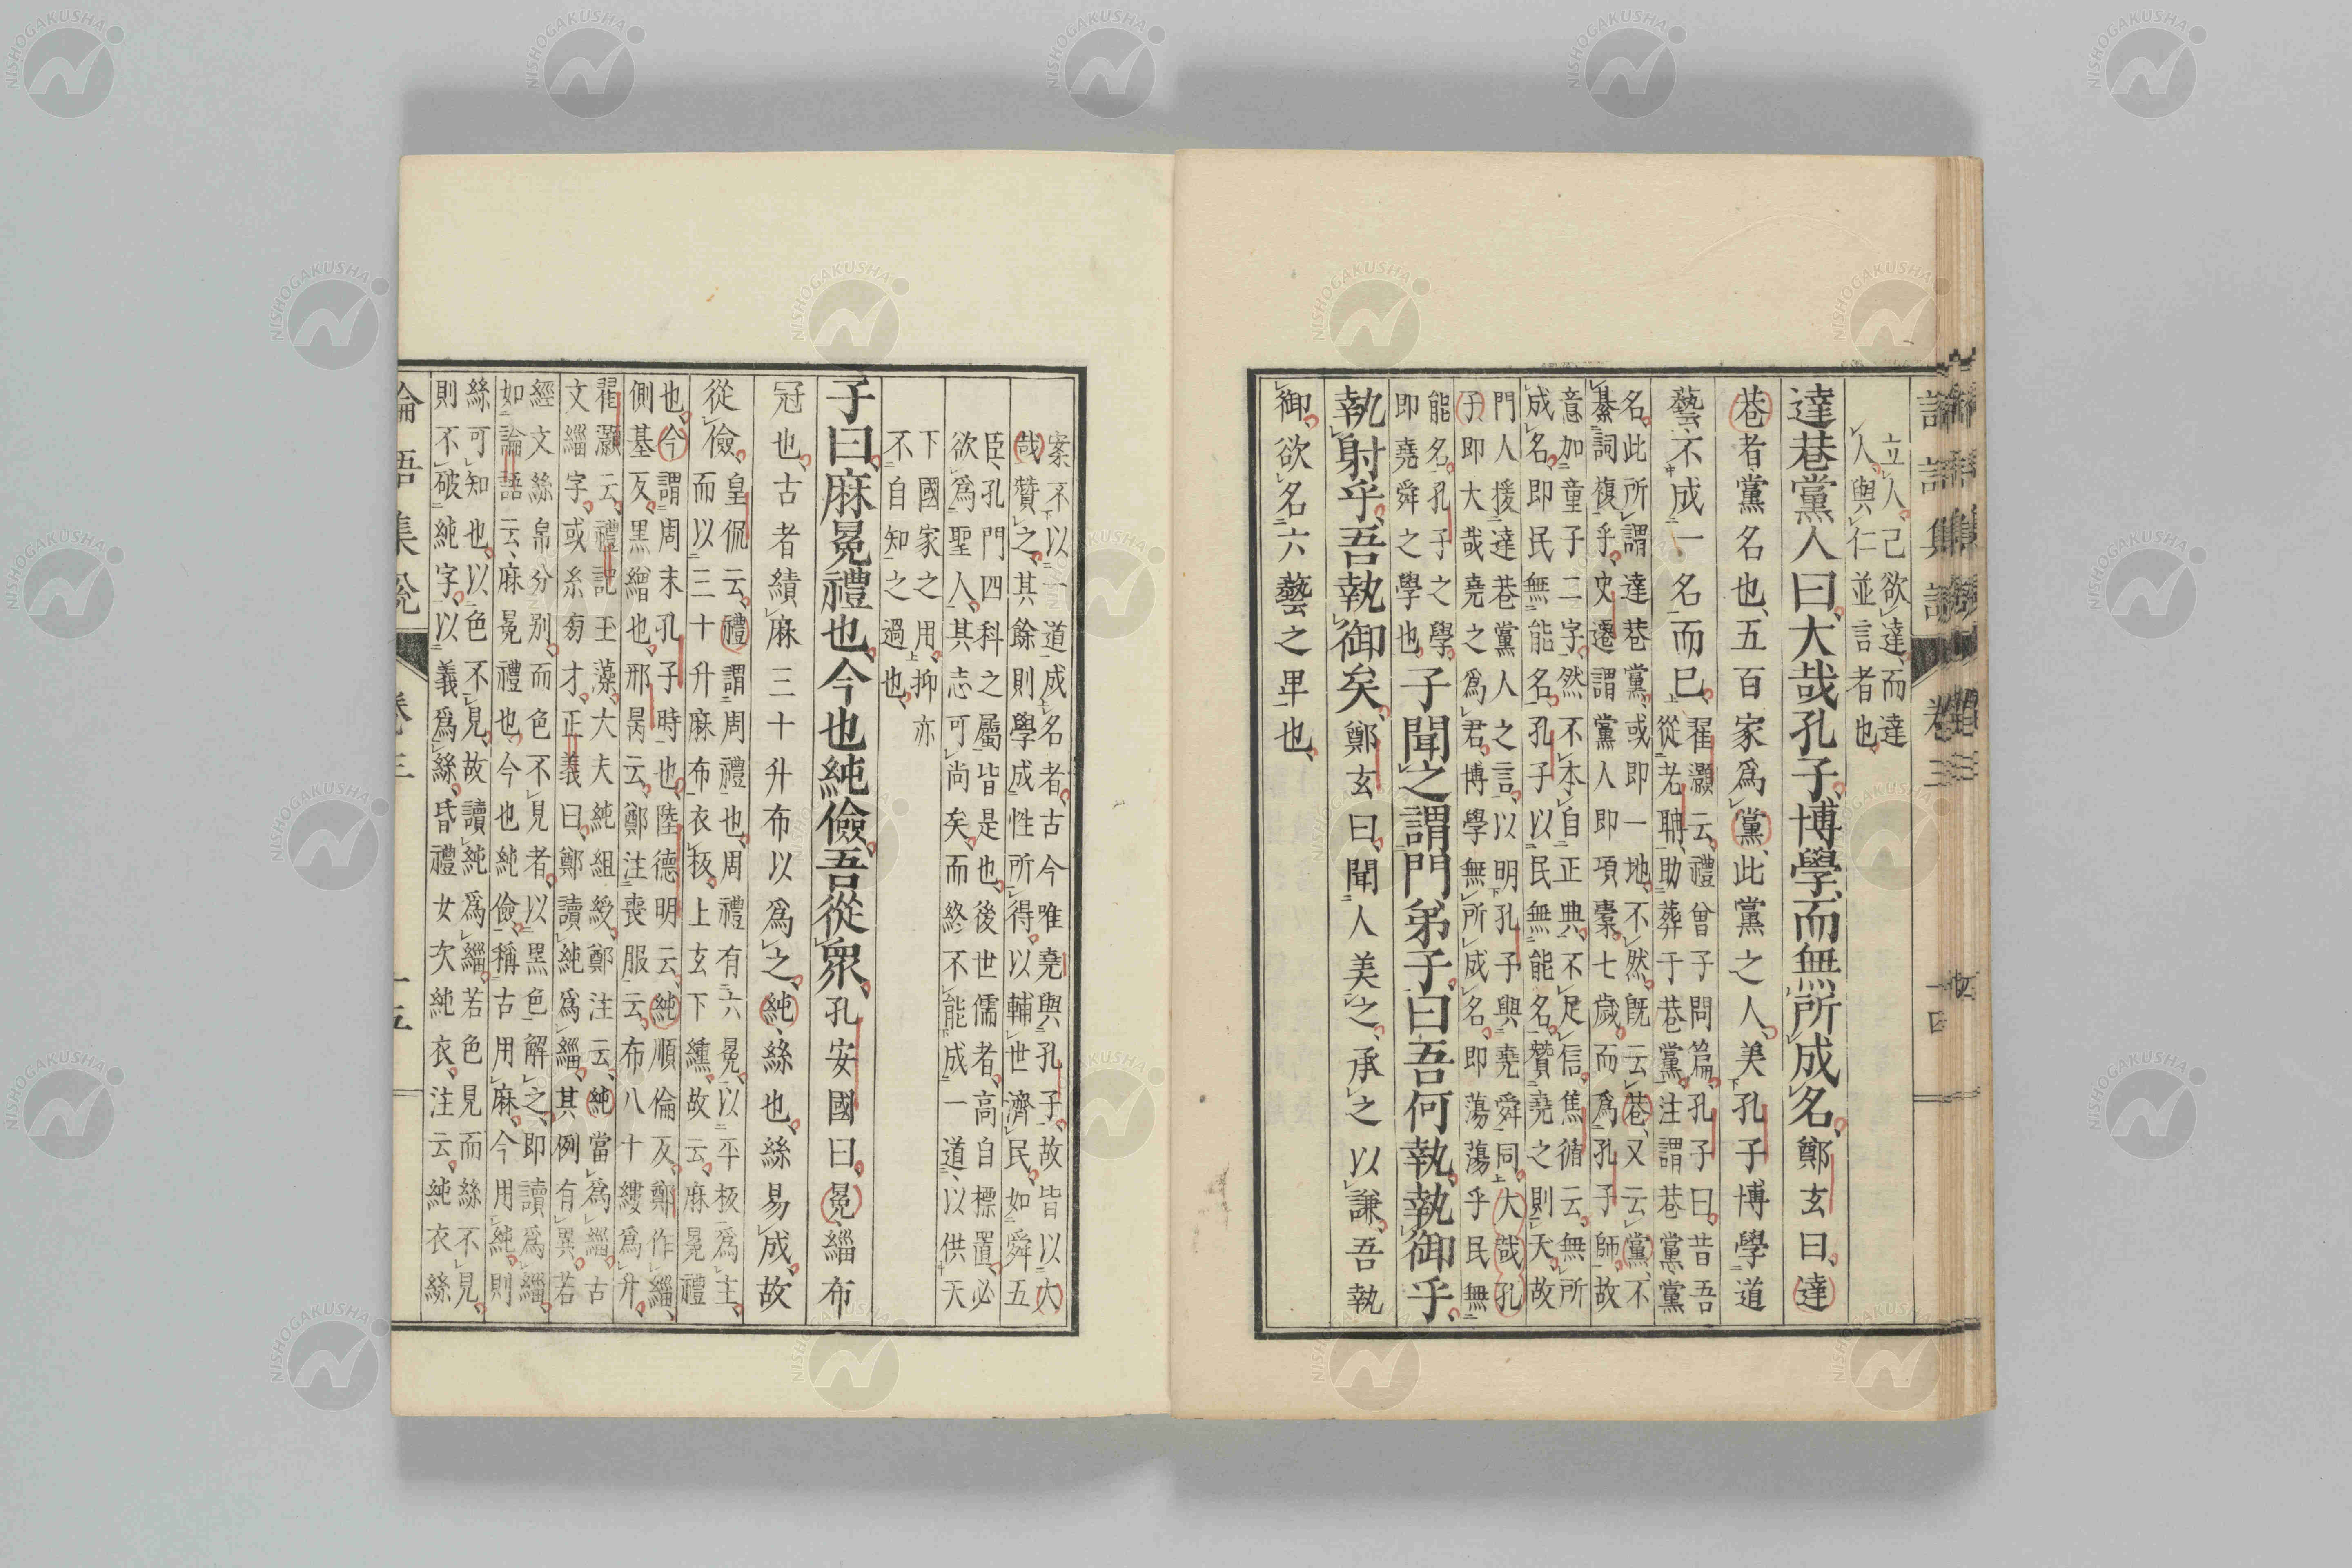 立人己欲達而達
人與仁並言者也
達巷黨人曰大哉孔子博學而無所成名鄭玄曰達
巷者黨名也五百家爲黨此黨之人美孔子博學道
藝不成一名而已
翟灝云禮曾子問篇孔子曰昔吾
從老聃助葬于巷黨注謂巷黨黨
名此所謂達巷黨或即一地不然既云巷又云黨不
綦詞複乎史遷謂黨人即項橐七歲而爲孔子師故
意加童子二字然不本自正典不足信焦循云無所
成名即民無能名孔子以民無能名贊堯之則天故
門人援達巷黨人之言以明孔子與堯舜同大哉孔
子即大哉堯之爲君博學無所成名即蕩蕩乎民無
能名孔子之學
即堯舜之學也
子聞之謂門弟子曰吾何執執御乎
執射乎吾執御矣鄭玄曰聞人美之承之以謙吾執
御欲名六藝之卑也
案不以一道成名者古今唯堯與孔子故皆以大
哉贊之其餘則學成性所得以輔世濟民如舜五
臣孔門四科之屬皆是也後世儒者高自標置必
欲爲聖人其志可尚矣而終不能成一道以供天
下國家之用抑亦
不自知之過也
子曰麻冕禮也今也純儉吾從衆孔安國曰冕緇布
冠也古者績麻三十升布以爲之純絲也絲易成故
從儉
皇侃云禮謂周禮也周禮有六冕以平板爲主
而以三十升麻布衣板上玄下纁故云麻冕禮
也今謂周末孔子時也陸德明云純順倫反鄭作緇
側基反黑繒也邢昺云鄭注喪服云布八十縷爲升
翟灝云禮記玉藻大夫純組綬鄭注云純當爲緇古
文緇字或糸旁才正義曰鄭讀純爲緇其例有異若
經文絲帛分別而色不見者以黑色解之即讀爲緇
如論語云麻冕禮也今也純儉稱古用麻今用純則
絲可知也以色不見故讀純爲緇若色見而絲不見
則不破純字以義爲絲昏禮女次純衣注云純衣絲